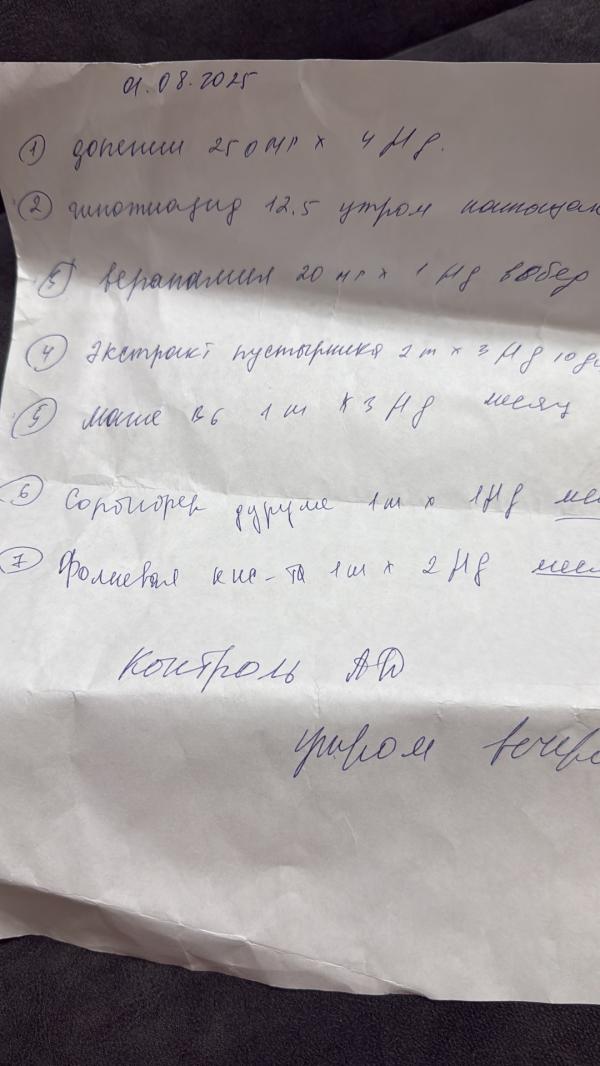 01.08.2025
① допегит 250 мг x 4 р/д.
② гипотиазид 12.5 утром натощак
③ верапамил 20 мг x 1 р/д в обед
④ Экстракт пустырника 2 т x 3 р/д 10 д
⑤ магне В6 1 т x 3 р/д месяц
⑥ Сорбифер дурулс 1 т x 1 р/д
⑦ Фолиевая кис-та 1 т x 2 р/д
Контроль АД
утром вечеро